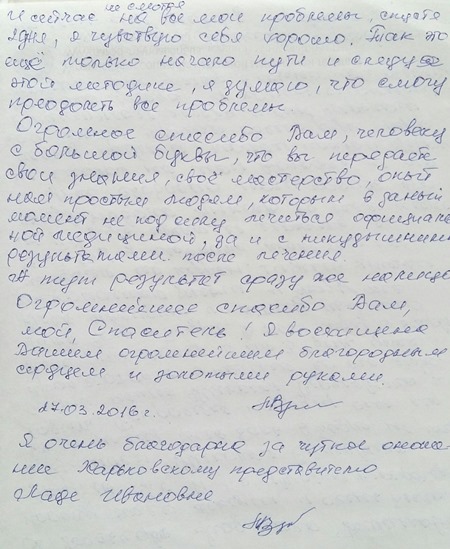 не смотря
И сейчас на все мои проблемы, спустя
2 дня, я чувствую себя хорошо. Так это
ещё только начало пути и следуя
этой методике, я думаю, что смогу
преодолеть все проблемы.
Огромное спасибо Вам, человеку
с большой буквы, что вы передаёте
свои знания, своё мастерство, опыт
нам простым людям, которым в даный
момент не под силу лечиться официаль
ной медициной, да и с никудышними
результатами после лечения.
А тут результат сразу же налицо
Огромнейшее спасибо Вам,
мой, Спаситель! Я восхищена
Вашим огромнейшим благородным
сердцем и золотыми руками.
27.03.2016 г.
Я очень благодарна за чуткое отноше
ние Харьковскому представителю
Ладе Ивановне